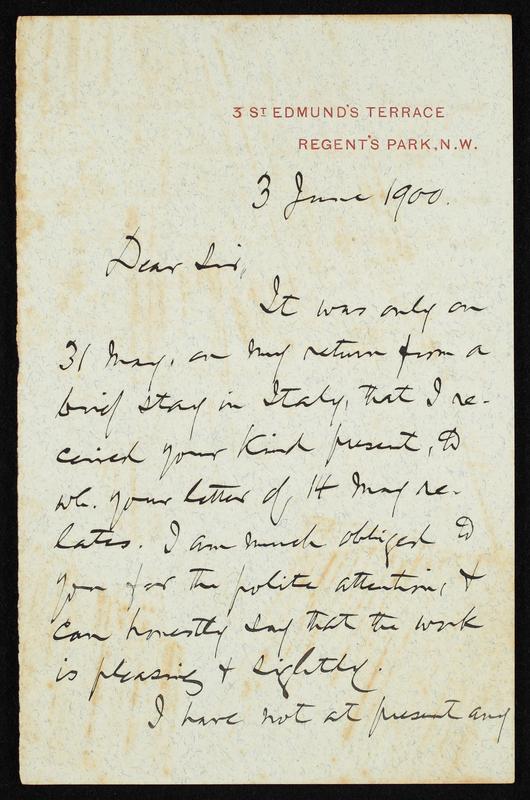 3 ST EDMUND'S TERRACE
REGENT'S PARK, N.W.
3 June 1900.
Dear Sir,
It was only on
31 May, on my return from a
brief stay in Italy, that I re-
ceived your kind present, to
wh. your letter of 14 May re-
lates. I am much obliged to
you for the polite attention, &
can honestly say that the work
is pleasing & sightly.
I have not at present any